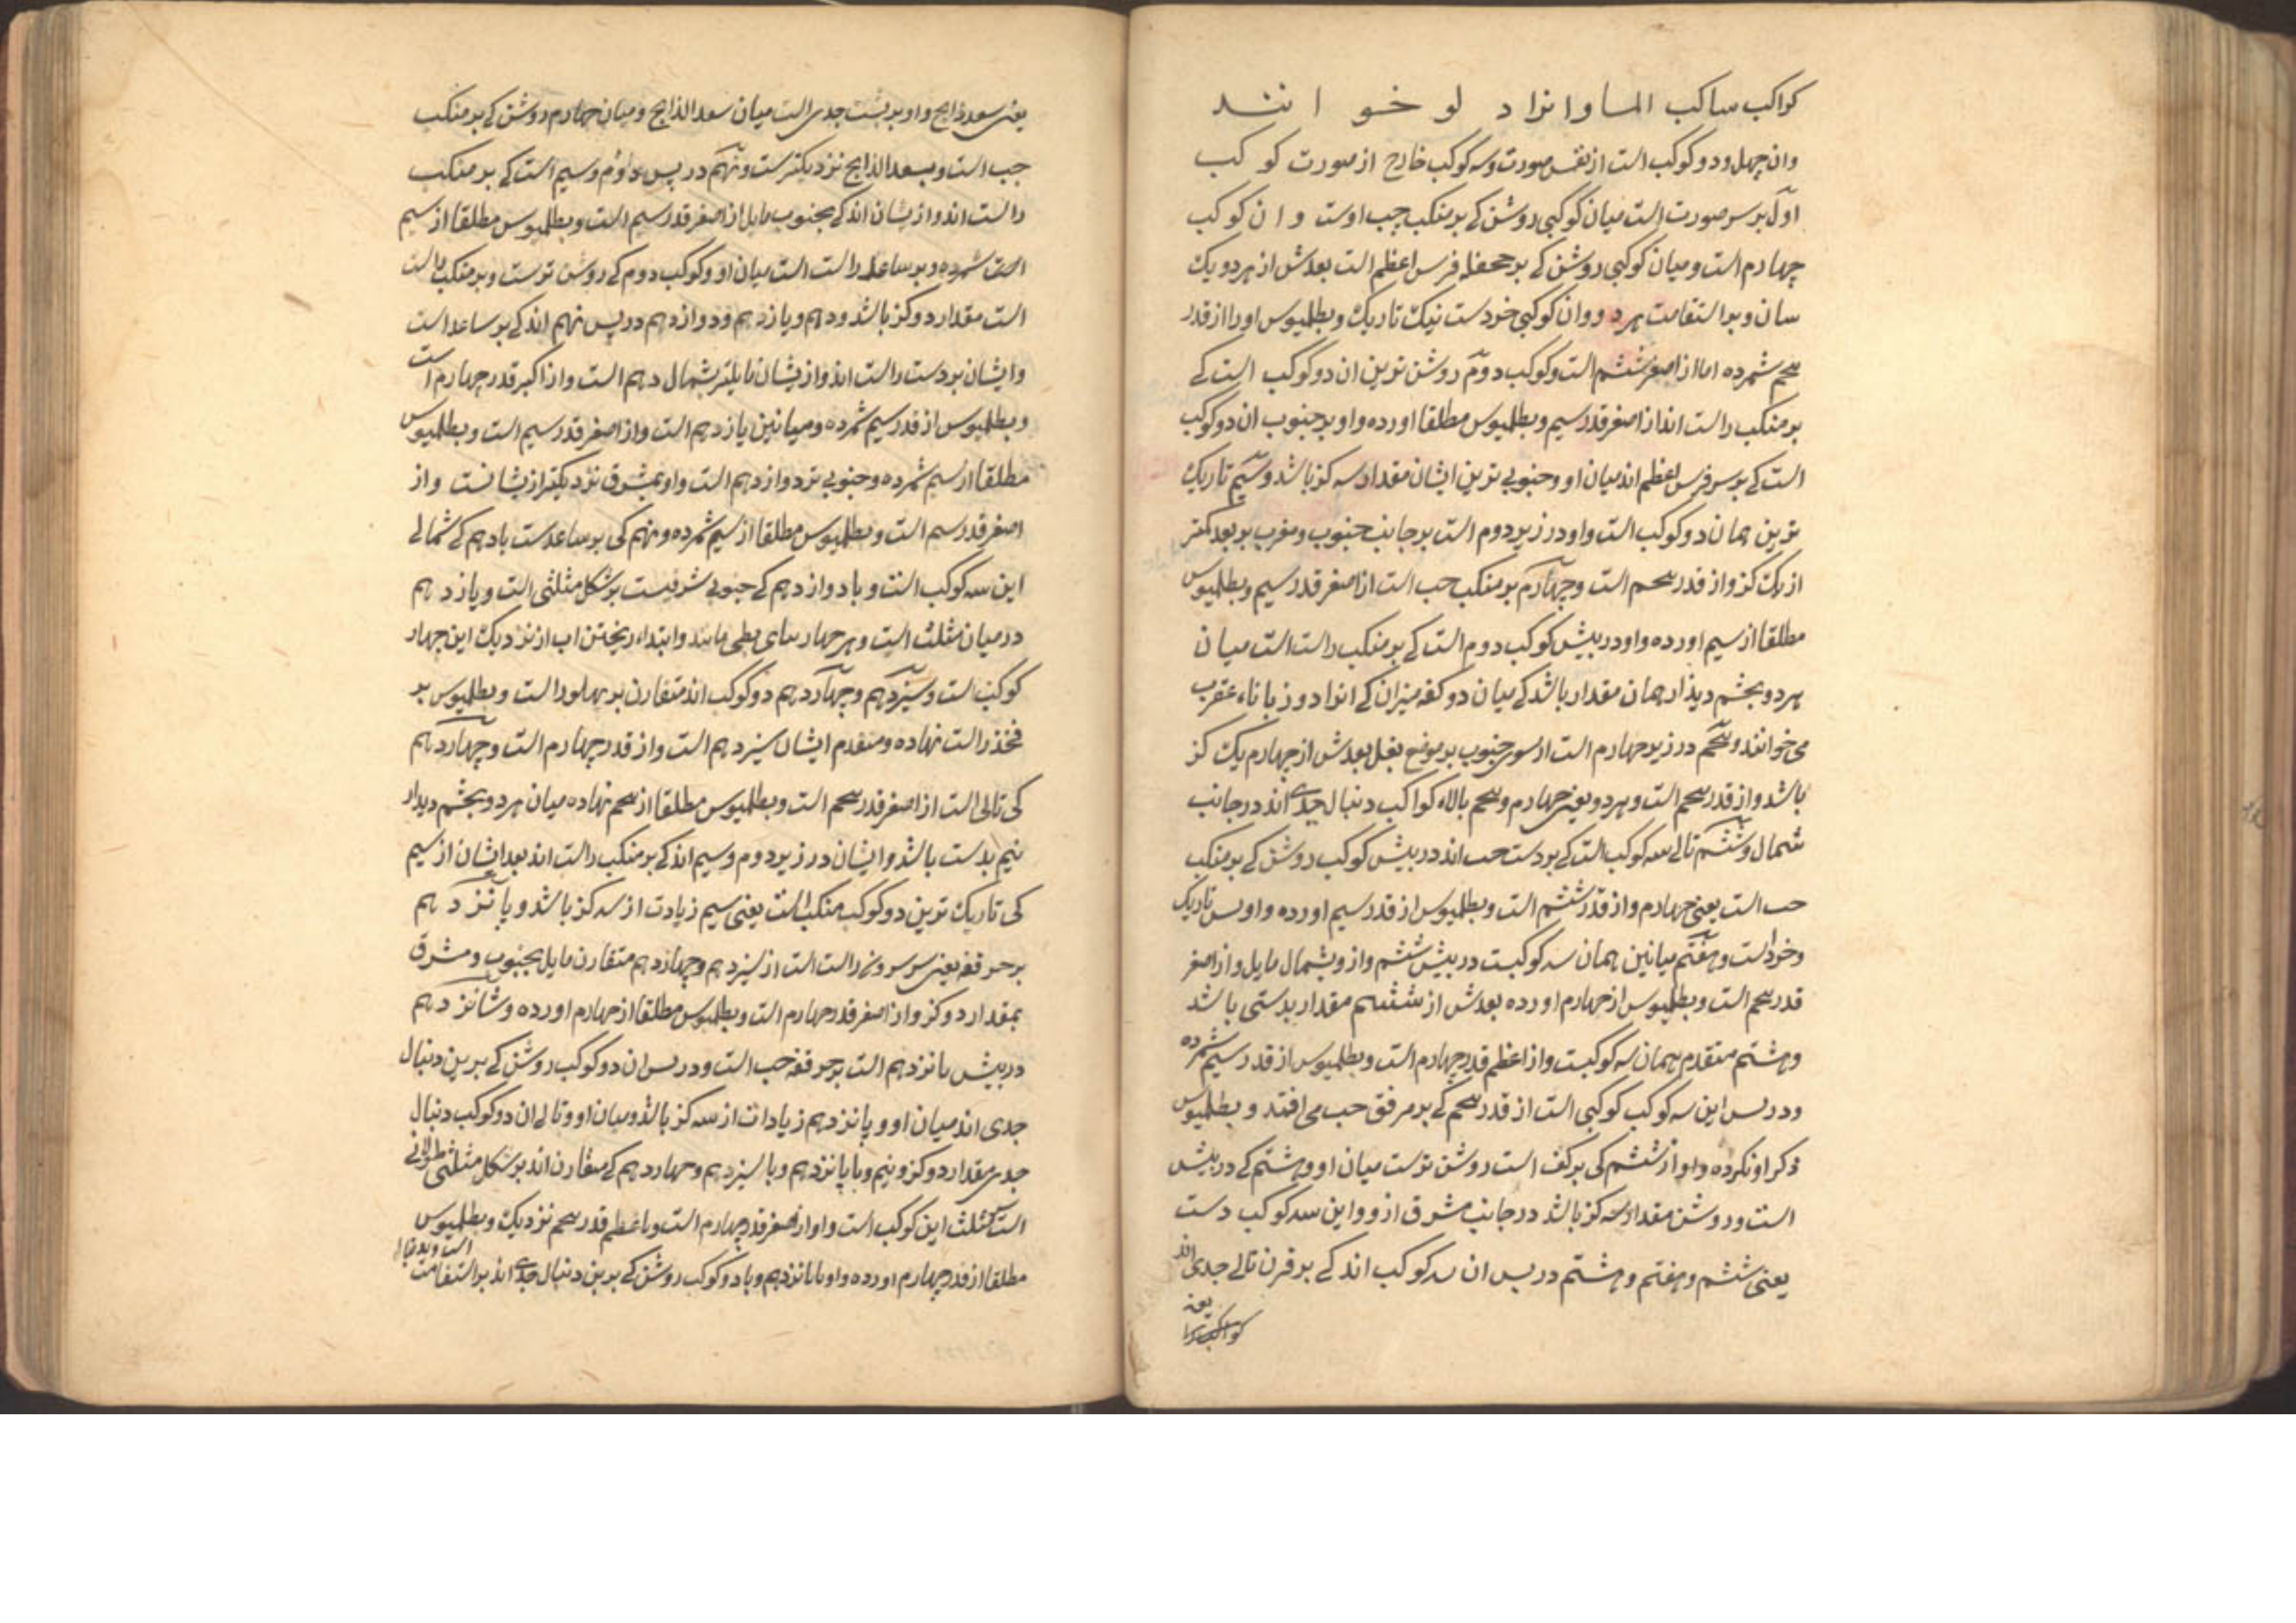 کواکب ساکب الما و انرا دلو خوانند
وان چهل و دو کوکب است از نفس صورت و سه کوکب خارج از صورت کوکب
اول بر سر صورت است میان کوکبی روشن کے بر منکب چپ اوست و ان کوکب
چهارم است و میان کوکبی روشن کے بر جحفله فرس اعظم است بعدش از هر دو یک
سان و بر استقامت هر دو و ان کوکبی خردست نیک تاریک و بطلمیوس او را از قدر
پنجم شمرده اما از اصغر ششم است و کوکب دوم روشن ترین ان دو کوکب است کے
بر منکب راست اند از اصغر قدر سیم و بطلمیوس مطلقا اورده و او بر جنوب ان دو کوکب
است کے بر سر فرس اعظم اند میان او و جنوبی ترین ایشان مقدار سه کز باشد و سیم تاریک
ترین همان دو کوکب است و او در زیر دوم است بر جانب جنوب و مغرب بر بعد کمتر
از یک کز و از قدر پنجم است و چهارم بر منکب چپ است از اصغر قدر سیم و بطلمیوس
مطلقا از سیم اورده و او در پیش کوکب دوم است کے بر منکب راست است میان
هر دو بچشم دیذار همان مقدار باشد کے میان دو کفه میزان کے انرا دو زباناء عقرب
می خوانند و پنجم در زیر چهارم است از سوی جنوب بر موضع بغل بعدش از چهارم یک کز
باشد و از قدر پنجم است و هر دو یعنی چهارم و پنجم بالاء کواکب دنبال جدی اند در جانب
شمال و ششم تالے سه کوکب است کے بر دست چپ اند در پیش کوکب روشن کے بر منکب
چپ است یعنی چهارم و از قدر ششم است و بطلمیوس از قدر سیم اورده و او بس تاریک
و خرد است و هفتم میانین همان سه کوکبست در پیش ششم و از و بشمال مایل و از اصغر
قدر پنجم است و بطلمیوس از چهارم اورده بعدش از ششم مقدار بدستی باشد
و هشتم متقدم همان سه کوکبست و از اعظم قدر چهارم است و بطلمیوس از قدر سیم شمرده
و در پس این سه کوکب کوکبی است از قدر پنجم کے بر مرفق چپ می افتد و بطلمیوس
ذکر او نکرده و او از ششم کی بر کف است روشن ترست میان او و هشتم کے در پیش
است و روشن مقدار سه کز باشد در جانب مشرق از و و این سه کوکب دست
یعنی ششم و هفتم و هشتم در پس ان سه کوکب اند کے بر قرن تالے جدی اند
یعنی
یعنی سعد ذابح و او بر پشت جدی است میان سعد الذابح و میان چهارم روشن کے بر منکب
چپ است و بسعد الذابح نزدیکترست و نهم در پس دوم و سیم است کے بر منکب
راست اند و از یشان اند کے بجنوب مایل از اصغر قدر سیم است و بطلمیوس مطلقا از سیم
است شمرده و بر ساعد راست است میان او و کوکب دوم کے روشن ترست و بر منکب راست
است مقدار دو کز باشد و دهم و یازدهم و دوازدهم در پس نهم اند کے بر ساعد است
و ایشان بر دست راست اند و از یشان مایلتر بشمال دهم است و از اکبر قدر چهارم است
و بطلمیوس از قدر سیم شمرده و میانین یازدهم است و از اصغر قدر سیم است و بطلمیوس
مطلقا از سیم شمرده و جنوبی تر دوازدهم است و او بمشرق نزدیکتر از یشانست و از
اصغر قدر سیم است و بطلمیوس مطلقا از سیم شمرده و نهم کی بر ساعدست با دهم کے شمالے
این سه کوکب است و با دوازدهم کے جنوبی شرقیست بر شکل مثلثی است و یازدهم
در میان مثلث است و هر چهار بپای بطی مانند و ابتداء ریختن اب از نزدیک این چهار
کوکب است و سیزدهم و چهاردهم دو کوکب اند متقارن بر پهلو راست و بطلمیوس بر
فخذ راست نهاده و متقدم ایشان سیزدهم است و از قدر چهارم است و چهاردهم
کی تالی است از اصغر قدر پنجم است و بطلمیوس مطلقا از پنجم نهاده میان هر دو بچشم دیدار
نیم بدست باشد و ایشان در زیر دوم و سیم اند کے بر منکب راست اند بعد ایشان از سیم
کی تاریک ترین دو کوکب منکب است یعنی سیم زیادت از سه کز باشد و پانزدهم
بر حرقفه یعنی سر سرون راست است از سیزدهم و چهاردهم متقارن مایل بجنوب و مشرق
بمقدار دو کز و از اصغر قدر چهارم است و بطلمیوس مطلقا از چهارم اورده و شانزدهم
در پیش پانزدهم است بر حرقفه چپ است و در پس ان دو کوکب روشن کے بر بن دنبال
جدی اند میان او و پانزدهم زیادت از سه کز باشد و میان او و تالے ان دو کوکب دنبال
جدی مقدار دو کز و نیم و با پانزدهم و با سیزدهم و چهاردهم کے متقارن اند بر شکل مثلثی طولانے
است مثلث این کوکب است و او از اصغر قدر چهارم است و باعظم قدر پنجم نزدیک و بطلمیوس
مطلقا از قدر چهارم اورده و او با پانزدهم و با دو کوکب روشن کے بر بن دنبال جدی اند بر استقامت